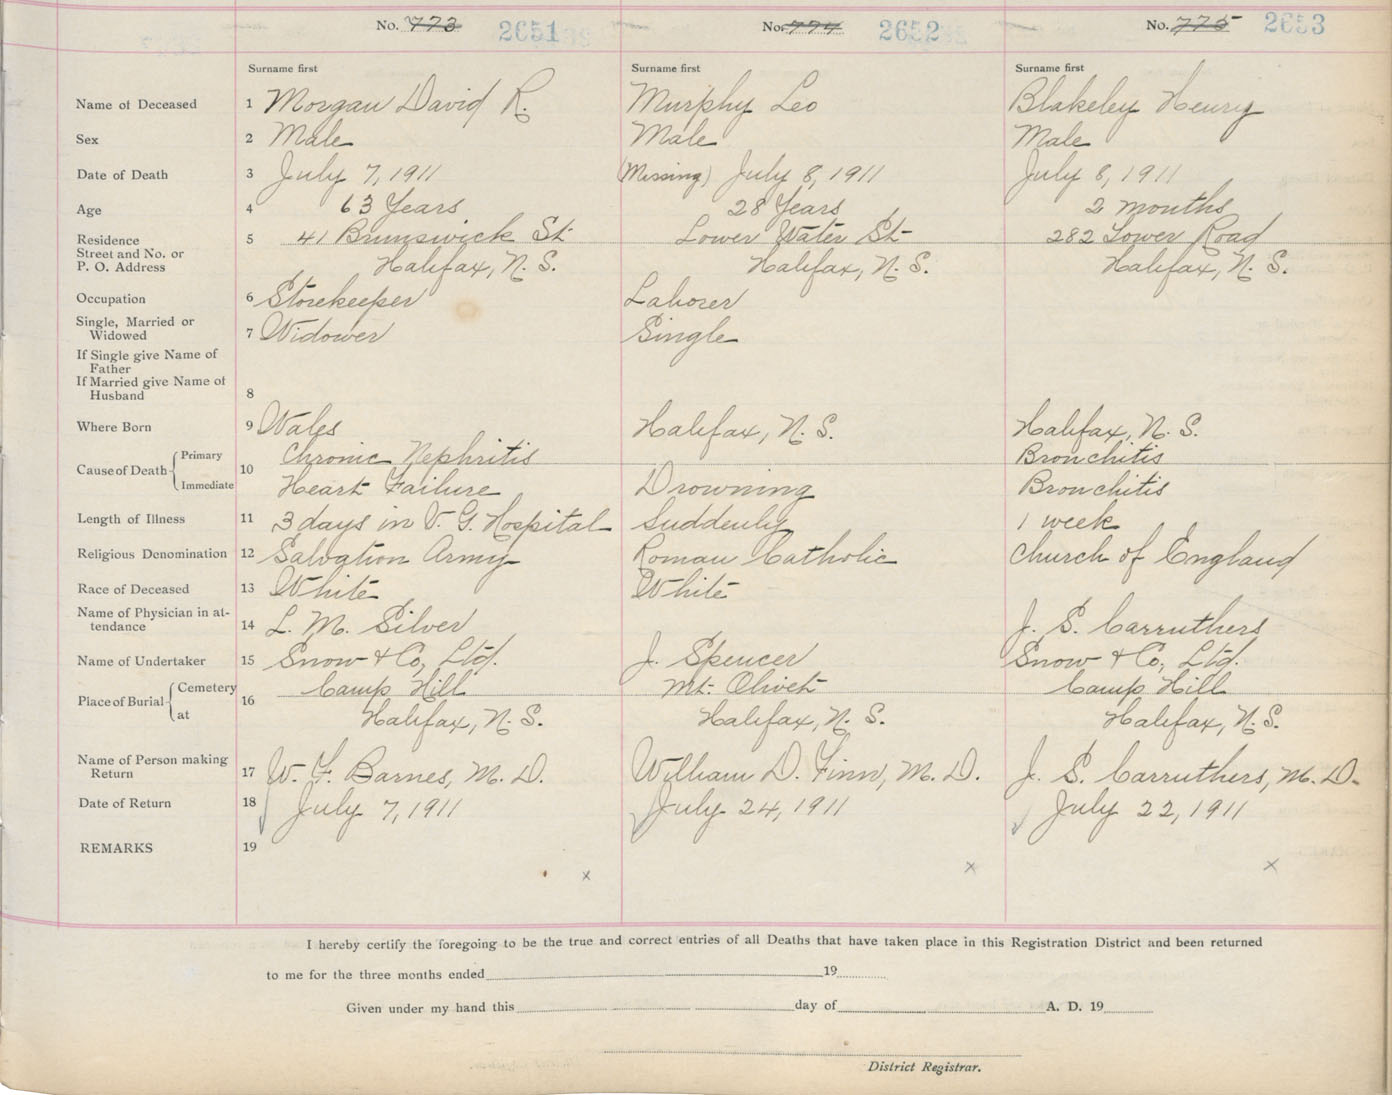 No. 773 2651 No. 774 2652 No. 775 2653
Surname first Surname first Surname first
Name of Deceased 1 Morgan David R. Murphy Leo Blakeley Henry
Sex 2 Male Male Male
Date of Death 3 July 7, 1911 (Missing) July 8, 1911 July 8, 1911
Age 4 63 Years 28 Years 2 months
Residence 5 41 Brunswick St. Lower Water St. 282 Lower Road
Street and No. or
P. O. Address Halifax, N. S. Halifax, N. S. Halifax, N. S.
Occupation 6 Storekeeper Laborer
Single, Married or
Widowed 7 Widower Single
If Single give Name of
Father
If Married give Name of
Husband 8
Where Born 9 Wales Halifax, N. S. Halifax, N. S.
Primary Chronic Nephritis Bronchitis
Cause of Death 10
Immediate Heart Failure Drowning Bronchitis
Length of Illness 11 3 days in V. G. Hospital Suddenly 1 week
Religious Denomination 12 Salvation Army Roman Catholic Church of England
Race of Deceased 13 White White
Name of Physician in at-
tendance 14 L. M. Silver J. S. Carruthers
Name of Undertaker 15 Snow & Co, Ltd. J. Spencer Snow & Co, Ltd.
Cemetery Camp Hill Mt. Olivet Camp Hill
Place of Burial 16
at Halifax, N. S. Halifax, N. S. Halifax, N. S.
Name of Person making
Return 17 W. F. Barnes, M. D. William D. Finn, M. D. J. S. Carruthers, M. D.
Date of Return 18 July 7, 1911 July 24, 1911 July 22, 1911
REMARKS 19
x x x
I hereby certify the foregoing to be the true and correct entries of all Deaths that have taken place in this Registration District and been returned
to me for the three months ended 19
Given under my hand this day of A. D. 19
District Registrar.